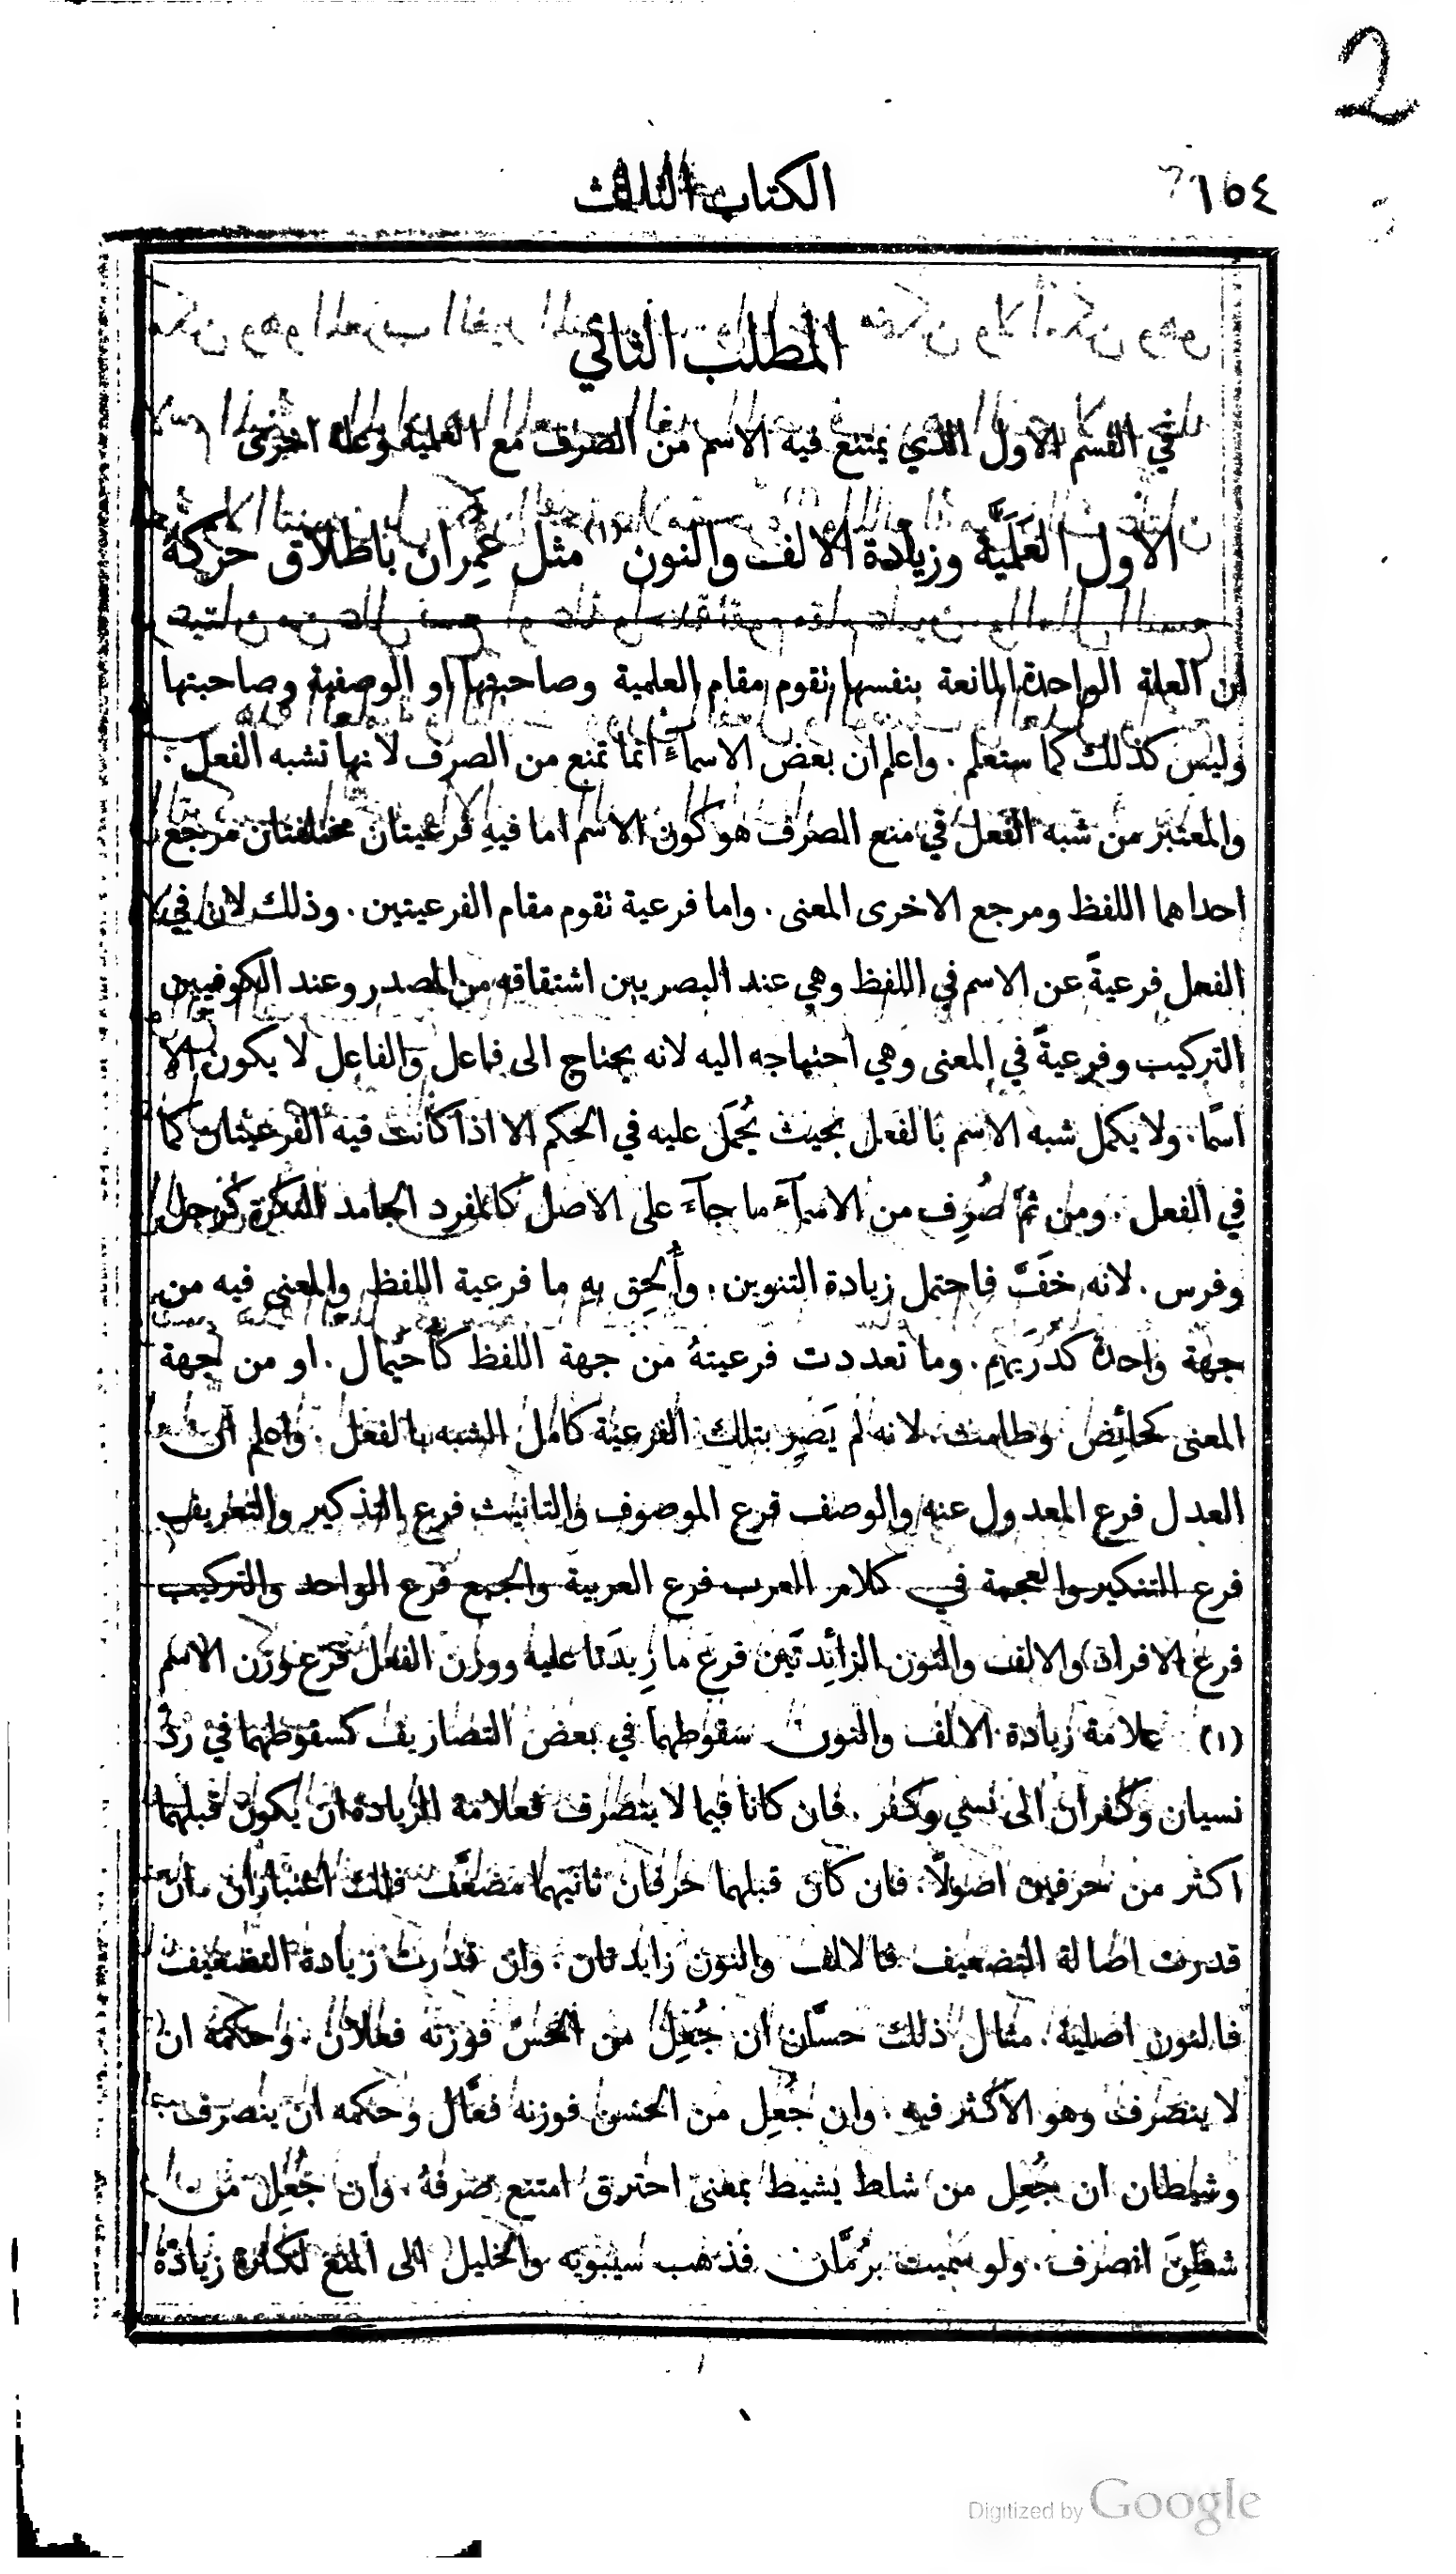 2
١٥٤
الكتاب الثالث
المطلب الثاني
في القسم الاول الذي يمتنع فيه الاسم من الصرف مع العلمية وعلة اخرى
الاول العَلَميَّة وزيادة الالف والنون (١) مثل عِمران باطلاق حركة
ان العلة الواحدة المانعة بنفسها تقوم مقام العلمية وصاحبتها او الوصفية وصاحبتها
وليس كذلك كما ستعلم. واعلم ان بعض الاسمآءِ انما تمنع من الصرف لانها تشبه الفعل.
والمعتبر من شبه الفعل في منع الصرف هو كون الاسم اما فيهِ فرعيتان مختلفتان مرجع
احداهما اللفظ ومرجع الاخرى المعنى. واما فرعية تقوم مقام الفرعيتين. وذلك لان في
الفعل فرعيةً عن الاسم في اللفظ وهي عند البصريين اشتقاقه من المصدر وعند الكوفيين
التركيب وفرعيةً في المعنى وهي احتياجه اليه لانه يحتاج الى فاعل والفاعل لا يكون الا
اسمًا. ولا يكمل شبه الاسم بالفعل بحيث يُحمَل عليه في الحكم الا اذا كانت فيه الفرعيتان كما
في الفعل. ومن ثَمَّ صُرِف من الاسمآءَ ما جآءَ على الاصل كالمفرد الجامد النكرة كرجل
وفرس. لانه خَفَّ فاحتمل زيادة التنوين. وأُلحِق بهِ ما فرعية اللفظ والمعنى فيه من
جهة واحدة كدُرَيهِمٍ. وما تعددت فرعيتهُ من جهة اللفظ كأُحَيْمال. او من جهة
المعنى كحائِض وطامث. لانه لم يَصِر بتلك الفرعية كامل الشبه بالفعل. واعلم ان
العدل فرع المعدول عنه والوصف فرع الموصوف والتانيث فرع التذكير والتعريف
فرع التنكير والعجمة في كلام العرب فرع العربية والجمع فرع الواحد والتركيب
فرع الافراد والالف والنون الزائِدتَين فرع ما زِيدَتا عليه ووزن الفعل فرع وزن الاسم
(١) علامة زيادة الالف والنون سقوطهما في بعض التصاريف كسقوطهما في ردّ
نسيان وكفران الى نسي وكفر. فان كانا فيما لا يتصرف فعلامة الزيادة ان يكون قبلهما
اكثر من حرفين اصولًا. فان كان قبلهما حرفان ثانيهما مضعَّف فلك اعتباران. ان
قدرت اصالة التضعيف فالالف والنون زايدتان. وان قدرت زيادة التضعيف
فالنون اصلية. مثال ذلك حسَّان ان جُعِل من الحسّ فوزنه فعلان. وحكمه ان
لا ينصرف وهو الاكثر فيه. وان جُعِل من الحسن فوزنه فعَّال وحكمه ان ينصرف
وشيطان ان جُعِل من شاط يشيط بمعنى احترق امتنع صرفهُ. وان جُعِل من
شطِنَ انصرف. ولو سميت برُمَّان فذهب سيبويه والخليل الى المنع لكثرة زيادة
Digitized by Google